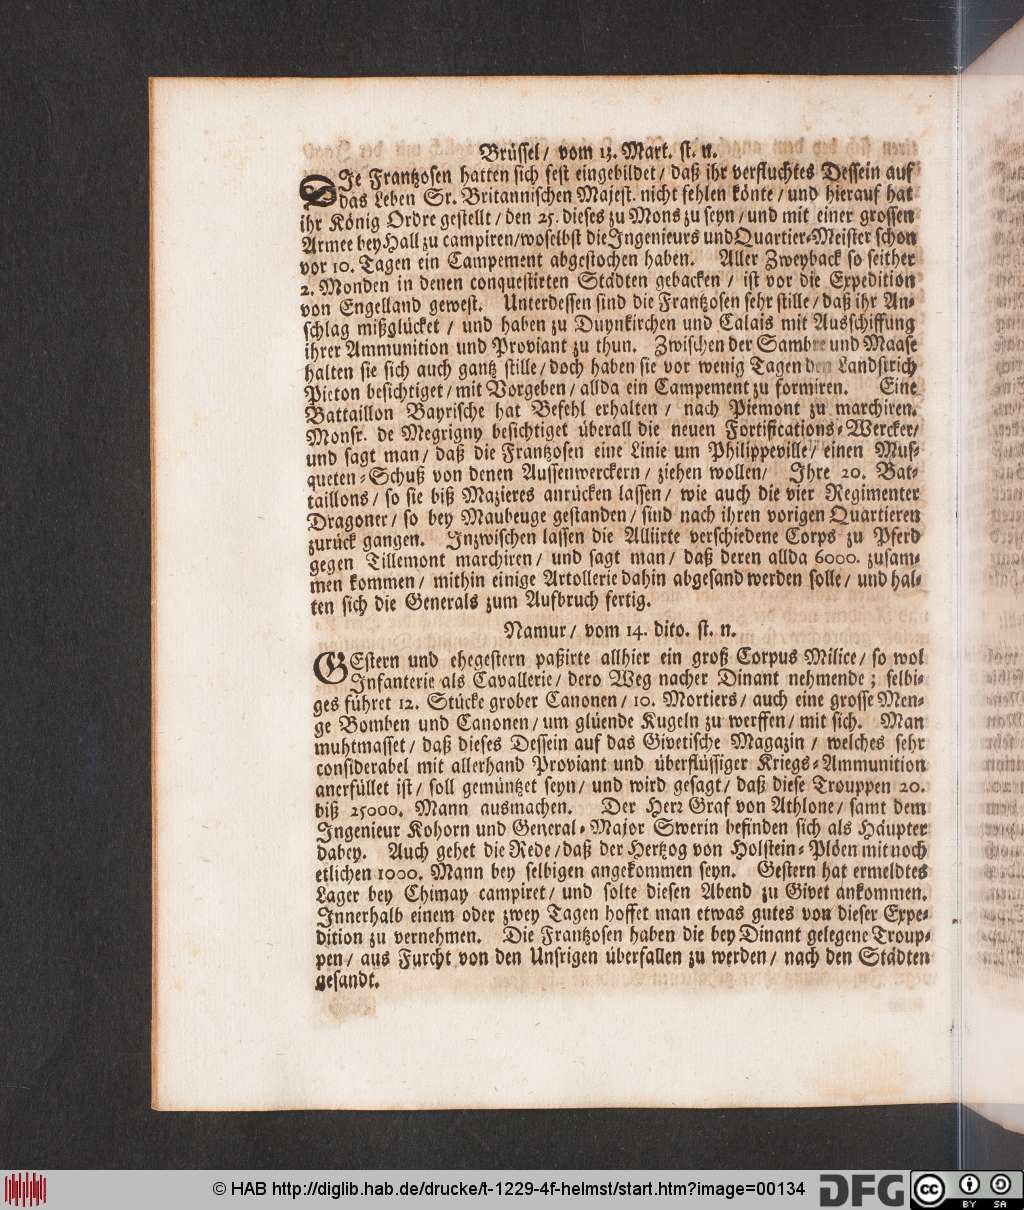 Brüssel/ vom 13. Mart. st. n.
DIe Frantzosen hatten sich fest eingebildet/ daß ihr verfluchtes Dessein auf
das Leben Sr. Britannischen Majest. nicht fehlen könte/ und hierauf hat
ihr König Ordre gestellt/ den 25. dieses zu Mons zu seyn/ und mit einer grossen
Armee bey Hall zu campiren/woselbst die Ingenieurs und Quartier-Meister schon
vor 10. Tagen ein Campement abgestochen haben. Aller Zweyback so seither
2. Monden in denen conquestirten Städten gebacken/ ist vor die Expedition
von Engelland gewest. Unterdessen sind die Frantzosen sehr stille/ daß ihr An-
schlag mißglücket/ und haben zu Duynkirchen und Calais mit Ausschiffung
ihrer Ammunition und Proviant zu thun. Zwischen der Sambre und Maase
halten sie sich auch gantz stille/ doch haben sie vor wenig Tagen den Landstrich
Pieton besichtiget/ mit Vorgeben/ allda ein Campement zu formiren. Eine
Battaillon Bayrische hat Befehl erhalten/ nach Piemont zu marchiren.
Monsr. de Megrigny besichtiget überall die neuen Fortifications-Wercker/
und sagt man/ daß die Frantzosen eine Linie um Philippeville/ einen Mus-
queten-Schuß von denen Aussenwerckern/ ziehen wollen/ Ihre 20. Bat-
taillons/ so sie biß Mazieres anrücken lassen/ wie auch die vier Regimenter
Dragoner/ so bey Maubeuge gestanden/ sind nach ihren vorigen Quartieren
zurück gangen. Inzwischen lassen die Alliirte verschiedene Corps zu Pferd
gegen Tillemont marchiren/ und sagt man/ daß deren allda 6000. zusam-
men kommen/ mithin einige Artollerie dahin abgesand werden solle/ und hal-
ten sich die Generals zum Aufbruch fertig.
Namur/ vom 14. dito. st. n.
GEstern und ehegestern paßirte allhier ein groß Corpus Milice/ so wol
Infanterie als Cavallerie/ dero Weg nacher Dinant nehmende; selbi-
ges führet 12. Stücke grober Canonen/ 10. Mortiers/ auch eine grosse Men-
ge Bomben und Canonen/ um glüende Kugeln zu werffen/ mit sich. Man
muhtmasset/ daß dieses Dessein auf das Givetische Magazin/ welches sehr
considerabel mit allerhand Proviant und überflüssiger Kriegs-Ammunition
anerfüllet ist/ soll gemüntzet seyn/ und wird gesagt/ daß diese Trouppen 20.
biß 25000. Mann ausmachen. Der Herr Graf von Athlone/ samt dem
Ingenieur Kohorn und General-Major Swerin befinden sich als Häupter
dabey. Auch gehet die Rede/ daß der Hertzog von Holstein-Plöen mit noch
etlichen 1000. Mann bey selbigen angekommen seyn. Gestern hat ermeldtes
Lager bey Chimay campiret/ und solte diesen Abend zu Givet ankommen.
Innerhalb einem oder zwey Tagen hoffet man etwas gutes von dieser Expe-
dition zu vernehmen. Die Frantzosen haben die bey Dinant gelegene Troup-
pen/ aus Furcht von den Unsrigen überfallen zu werden/ nach den Städten
gesandt.
© HAB http://diglib.hab.de/drucke/t-1229-4f-helmst/start.htm?image=00134
DFG
cc BY SA